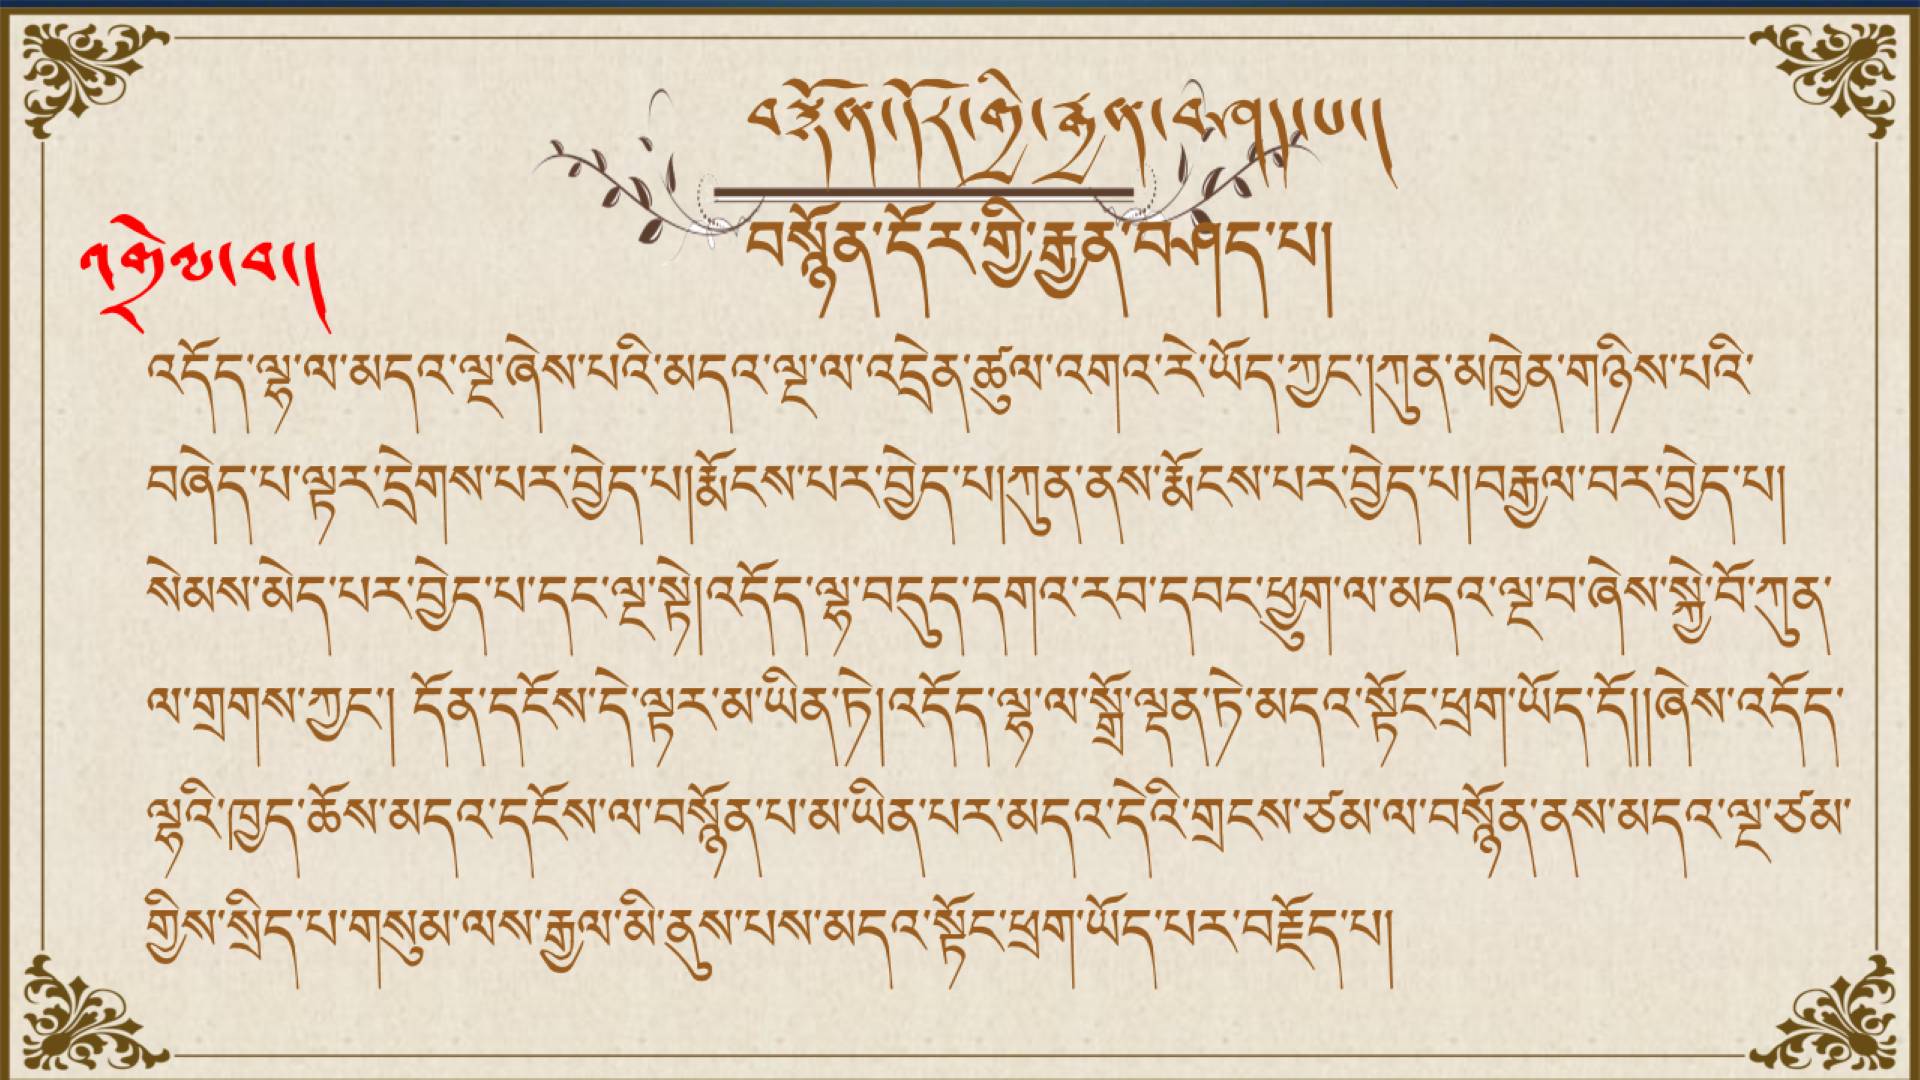 བསྙོན་དོར་གྱི་རྒྱན་བཤད་པ།
བསྙོན་དོར་གྱི་རྒྱན་བཤད་པ།
འགྲེལ་བ།
འདོད་ལྷ་ལ་མདའ་ལྔ་ཞེས་པའི་མདའ་ལྔ་ལ་འདྲེན་ཚུལ་འགའ་རེ་ཡོད་ཀྱང་།ཀུན་མཁྱེན་གཉིས་པའི་
བཞེད་པ་ལྟར་དྲེགས་པར་བྱེད་པ།རྨོངས་པར་བྱེད་པ།ཀུན་ནས་རྨོངས་པར་བྱེད་པ།བརྒྱལ་བར་བྱེད་པ།
སེམས་མེད་པར་བྱེད་པ་དང་ལྔ་སྟེ།འདོད་ལྷ་བདུད་དགའ་རབ་དབང་ཕྱུག་ལ་མདའ་ལྔ་བ་ཞེས་སྐྱེ་བོ་ཀུན་
ལ་གྲགས་ཀྱང་། དོན་དངོས་དེ་ལྟར་མ་ཡིན་ཏེ།འདོད་ལྷ་ལ་སྒྲོ་ལྡན་ཏེ་མདའ་སྟོང་ཕྲག་ཡོད་དོ།།ཞེས་འདོད་
ལྷའི་ཁྱད་ཆོས་མདའ་དངོས་ལ་བསྙོན་པ་མ་ཡིན་པར་མདའ་དེའི་གྲངས་ཙམ་ལ་བསྙོན་ནས་མདའ་ལྔ་ཙམ་
གྱིས་སྲིད་པ་གསུམ་ལས་རྒྱལ་མི་ནུས་པས་མདའ་སྟོང་ཕྲག་ཡོད་པར་བརྗོད་པ།